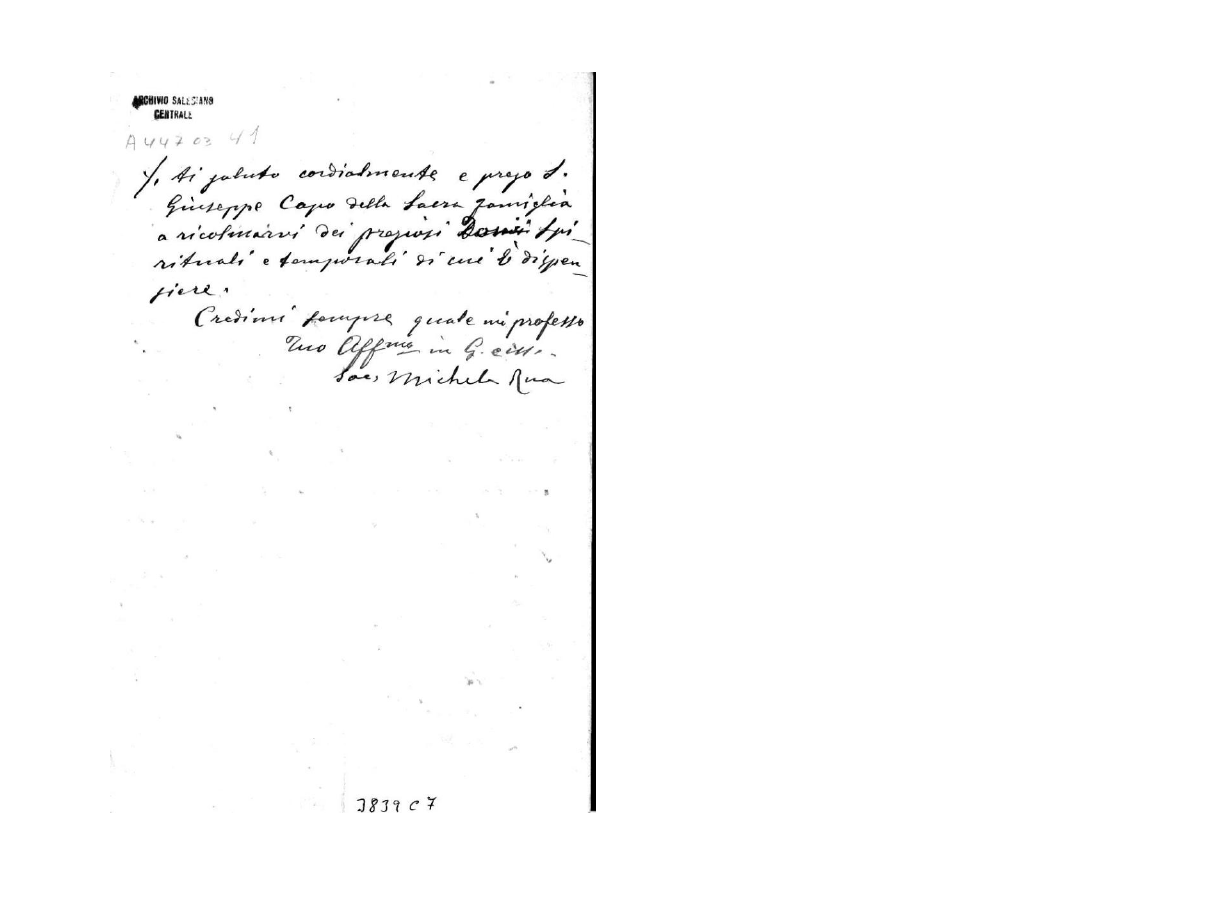 ARCHIVIO SALESIANO
CENTRALE
A 447 03 41
/. ti saluto cordialmente e prego S.
Giuseppe Capo della Sacra Famiglia
a ricolmarvi dei preziosi Donii Spi_
rituali e temporali di cui è dispen_
siere.
Credimi sempre quale mi professo
Tuo Affmo in G. e
Sac. Michele Rua
3839 C 7